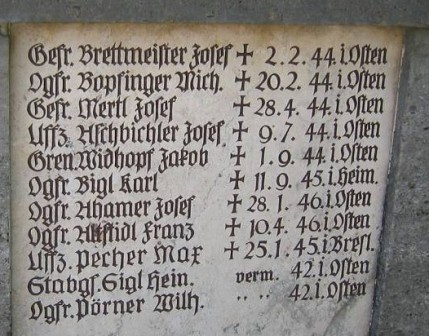 Gefr. Brettmeister Josef + 2. 2. 44. i. Osten
Ogfr. Bopfinger Mich. + 20. 2. 44. i. Osten
Gefr. Mertl Josef + 28. 4. 44. i. Osten
Uffz. Aschbichler Josef + 9. 7. 44. i. Osten
Gren. Widhopf Jakob + 1. 9. 44 i. Osten
Ogfr. Bigl Karl + 11. 9. 45. i. Heim.
Ogfr. Ahamer Josef + 28. 1. 46. i. Osten
Ogfr. Franz + 10. 4. 46. i. Osten
Uffz. Pecher Max + 25. 1. 45. i. Bresl.
Stabgf. Sigl Hein. verm. 42. i. Osten
Ogfr. Pörner Wilh. " " 42. i. Osten